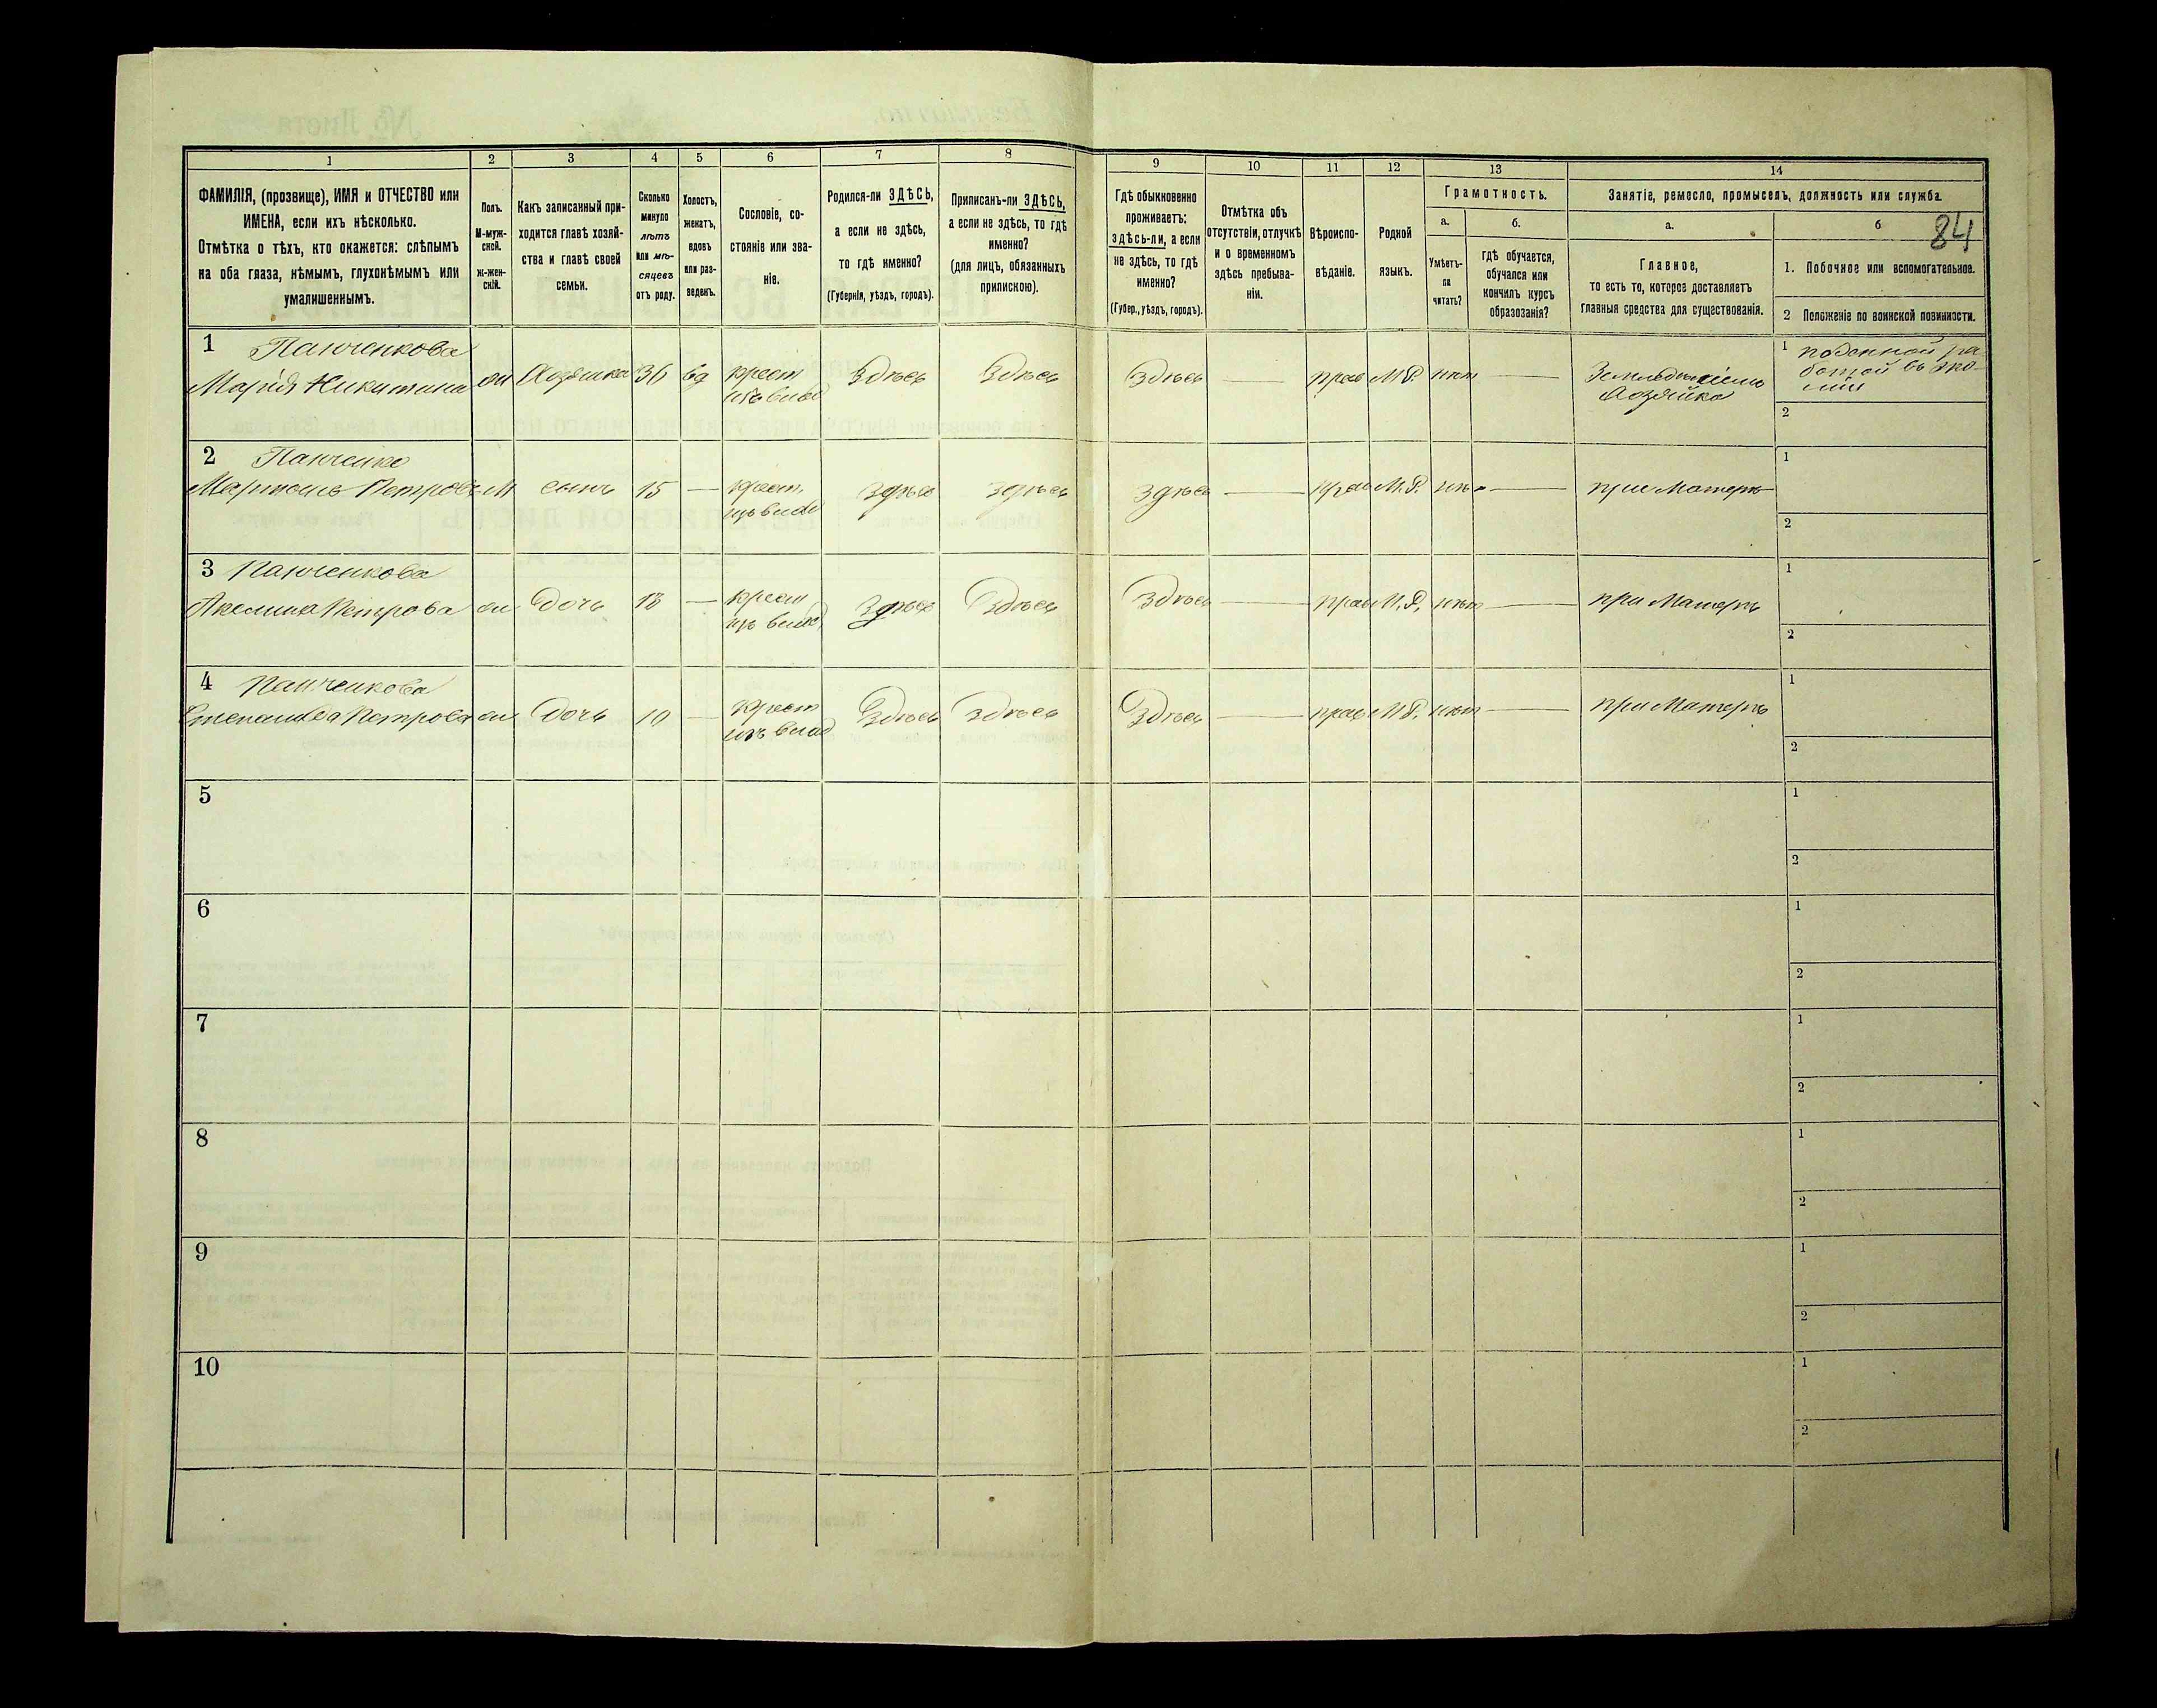 1 2 3 4 5 6 7 8 9 10 11 12 13 14
ФАМИЛІЯ, (прозвище), ИМЯ и ОТЧЕСТВО или
ИМЕНА, если ихъ нѣсколько.
Отмѣтка о тѣхъ, кто окажется: слѣпымъ
на оба глаза, нѣмымъ, глухонѣмымъ или
умалишеннымъ.
Полъ.
М-муж-
ской.
Ж-жен-
скій.
Какъ записанный при-
ходится главѣ хозяй-
ства и главѣ своей
семьи.
Сколько
минуло
лѣтъ
или мѣ-
сяцевъ
отъ роду.
Холостъ,
женатъ,
вдовъ
или раз-
веденъ.
Сословіе, со-
стояніе или зва-
ніе.
Родился-ли ЗДѢСЬ,
а если не здѣсь,
то гдѣ именно?
(Губернія, уѣздъ, городъ).
Приписанъ-ли ЗДѢСЬ,
а если не здѣсь, то гдѣ
именно?
(для лицъ, обязанныхъ
припискою).
Гдѣ обыкновенно
проживаетъ:
здѣсь-ли, а если
не здѣсь, то гдѣ
именно?
(Губер., уѣздъ, городъ).
Отмѣтка объ
отсутствіи, отлучкѣ
и о временномъ
здѣсь пребыва-
ніи.
Вѣроиспо-
вѣданіе.
Родной
языкъ.
Грамотность.
а. б.
Умѣетъ-
ли
читать?
гдѣ обучается,
обучался или
кончилъ курсъ
образозанія?
Занятіе, ремесло, промыселъ, должность или служба.
а. б 84
Главное,
то есть то, которое доставляетъ
главныя средства для существованія.
1. Побочное или вспомогательное.
2 Положеніе по воинской повинности.
1 Панченкова 1 поденной ра
ботой въ эко-
Марія Никитина Хозяйка 36 вд крест Здѣсь Здѣсь Здѣсь — прав М.Р. нѣт — Земледѣліемъ
мія
Хозяйка
2
2 Панченко 1
Мартынъ Петровъ М сынъ 15 — крест. здѣсь здѣсь здѣсь — прав М.Р. нѣт — при Матери
изъ влад
2
3 Панченкова 1
Акелина Петрова дочь 13 — крест здѣсь Здѣсь Здѣсь — прав М.Р. нѣт — при Матерѣ
изъ влад
2
4 Панченкова 1
Степанида Петрова дочь 10 — крест Здѣсь Здѣсь Здѣсь — прав М.Р. нѣт — при Матерѣ
изъ влад
2
5 1
2
6 1
2
7 1
2
8 1
2
9 1
2
10 1
2